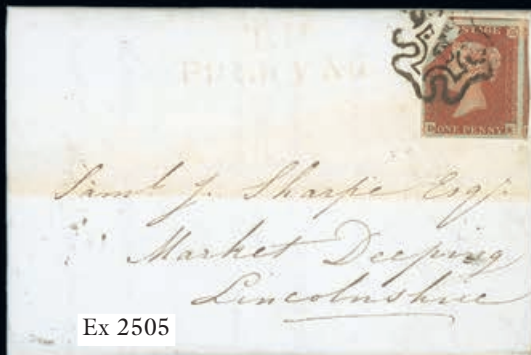 POSTAGE
ONE PENNY
Saml J. Sharpe Esqr
Market Deeping
Lincolnshire
Ex 2505